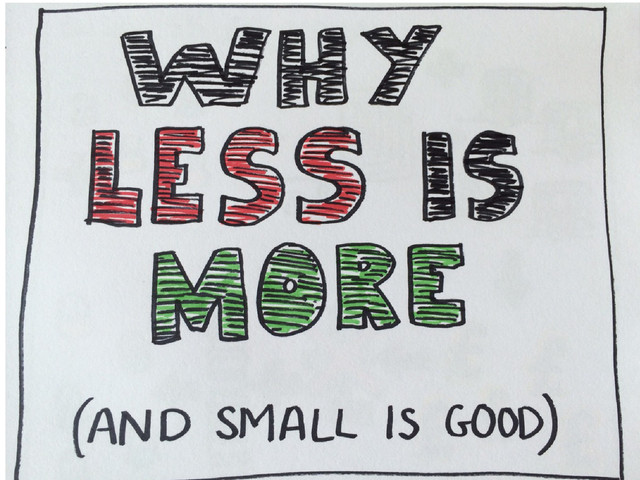 WHY
LESS IS
MORE
(AND SMALL IS GOOD)